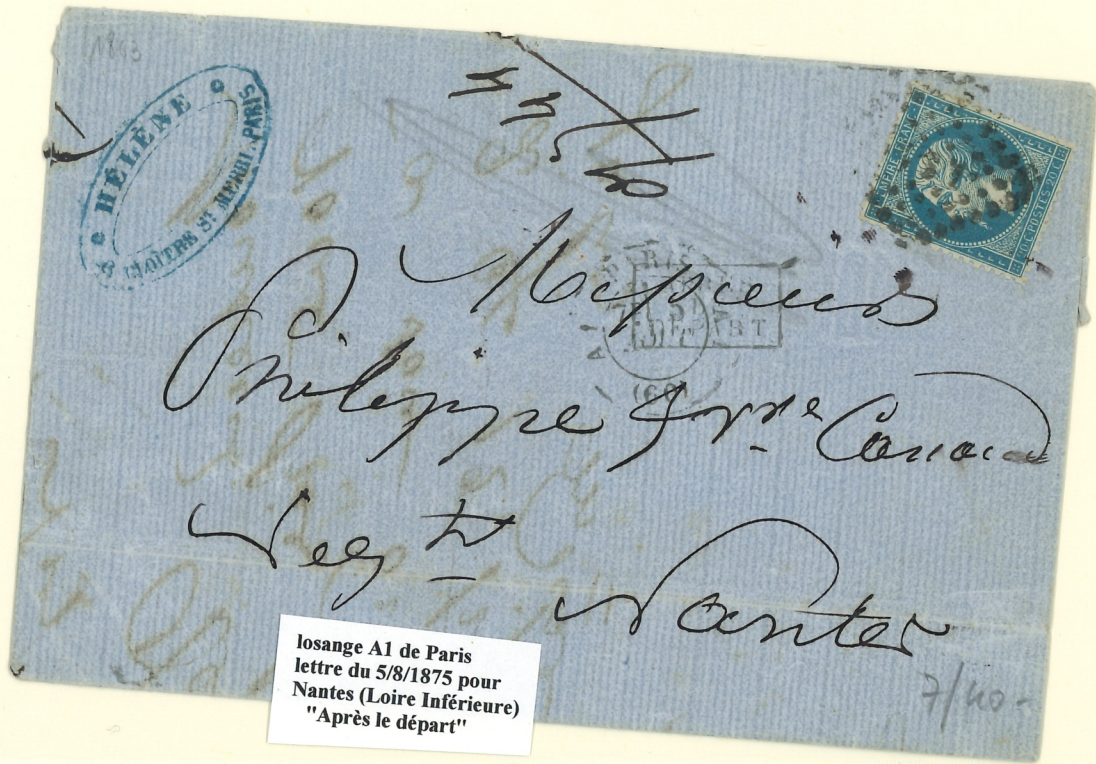 1863
HÉLÈNE
CLOÎTRE St MERRI. PARIS
EMPIRE FRANC
20 C. POSTES 20 C.
PARIS
(60)
Messieurs
Philippe frère Canaud
Neg.t
Nantes
7/40-
losange A1 de Paris
lettre du 5/8/1875 pour
Nantes (Loire Inférieure)
"Après le départ"